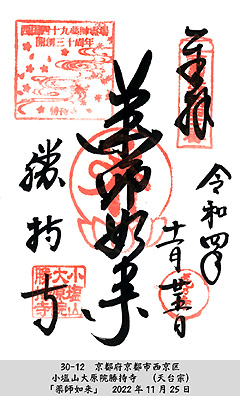 奉拝
令和四年
十一月廿五日
薬師如来
勝持寺
西国四十九薬師霊場
開創三十周年
小塩山
大原院
勝持寺
30-12 京都府京都市西京区
小塩山大原院勝持寺 (天台宗)
「薬師如来」 2022年11月25日